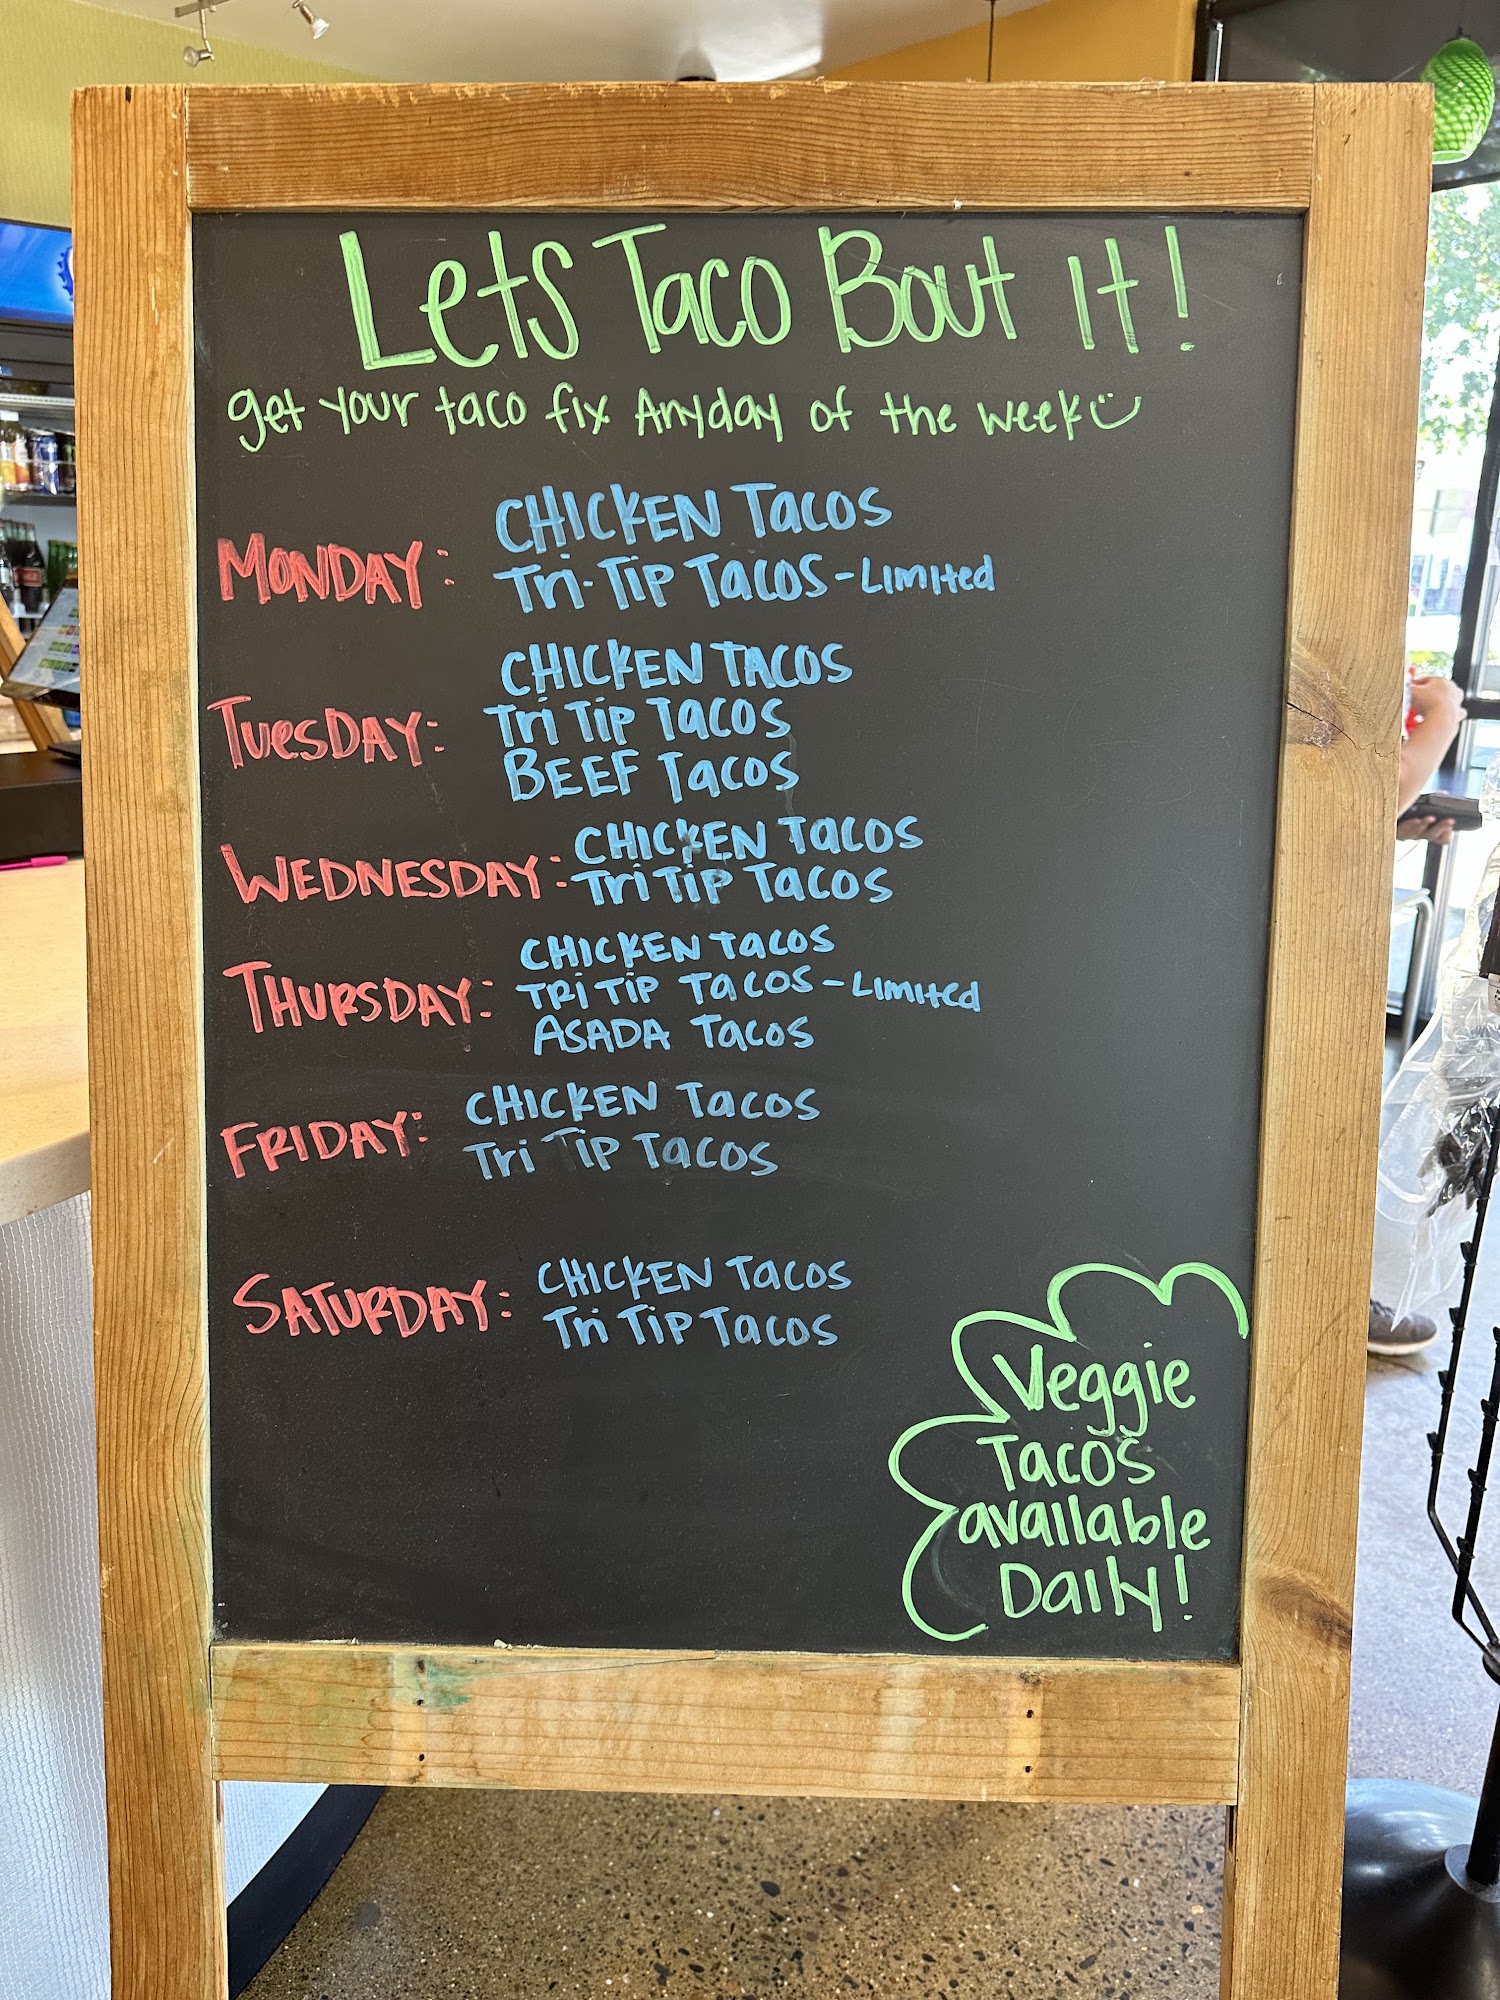 Lets Taco Bout It!
get your taco fix Anyday of the week
MONDAY: CHICKEN TACOS
Tri-Tip TACOS - Limited
TUESDAY: CHICKEN TACOS
Tri Tip TACOS
BEEF TACOS
WEDNESDAY: CHICKEN TACOS
Tri Tip TACOS
THURSDAY: CHICKEN TACOS
TRI TIP TACOS - Limited
ASADA TACOS
FRIDAY: CHICKEN TACOS
Tri Tip TACOS
SATURDAY: CHICKEN TACOS
Tri Tip TACOS
Veggie
Tacos
available
Daily!